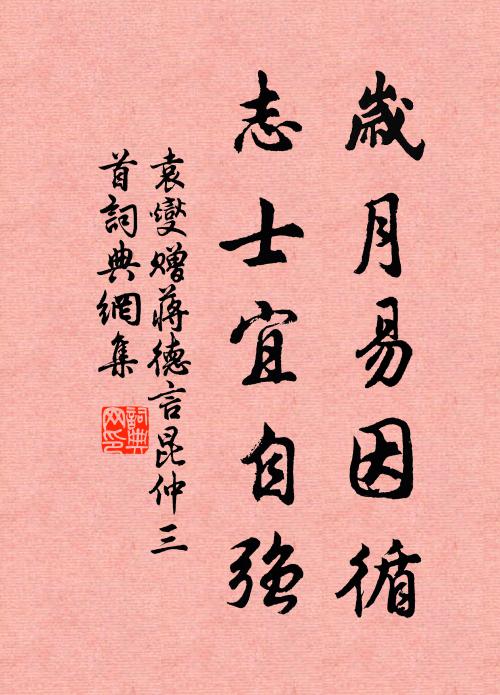 歲月易因循
志士宜自強
袁燮贈蔣德言昆仲三
首詞典網集
詞典
网印